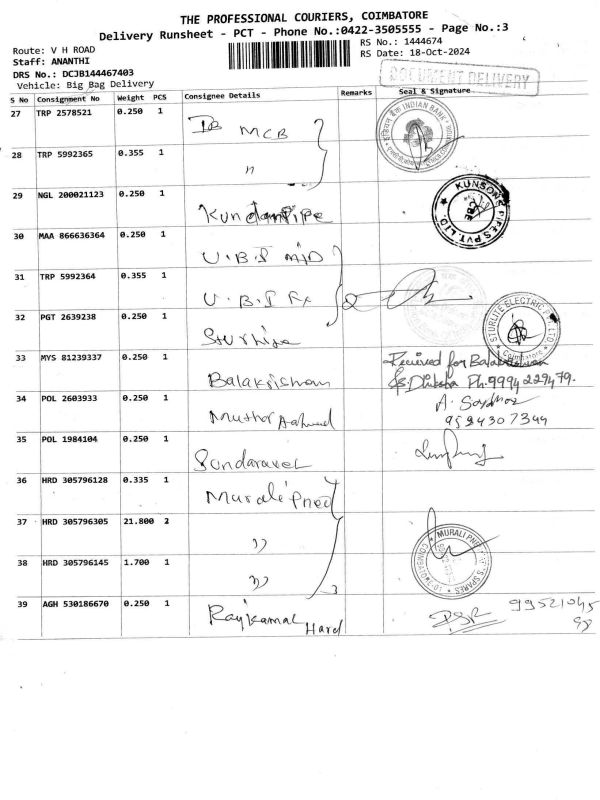 THE PROFESSIONAL COURIERS, COIMBATORE
Delivery Runsheet - PCT - Phone No.:0422-3505555 - Page No.:3
Route: V H ROAD
RS No.: 1444674
Staff: ANANTHI
RS Date: 18-Oct-2024
DRS No.: DCJB144467403
DOCUMENT DELIVERY
Vehicle: Big Bag Delivery
S No Consignment No Weight PCS Consignee Details Remarks Seal & Signature
27 TRP 2578521 0.250 1 IB MCB INDIAN BANK
28 TRP 5992365 0.355 1 "
29 NGL 200021123 0.250 1 Kundan Pipe KUNSONS PIPES PVT. LTD. CBE
30 MAA 866636364 0.250 1 U.B.I MID
31 TRP 5992364 0.355 1 U.B.I Fx
32 PGT 2639238 0.250 1 STURLITE ELECTRIC P LTD Coimbatore
33 MYS 81239337 0.250 1 Balakrishnan Recieved for Balakrishnan
Ph. 9994229479.
34 POL 2603933 0.250 1 Muthor
9594307344
35 POL 1984104 0.250 1 Sundaravel
36 HRD 305796128 0.335 1 Murali Pned
37 HRD 305796305 21.800 2 "
38 HRD 305796145 1.700 1 " MURALI COIMBATORE
39 AGH 530186670 0.250 1 Rajkamal Hard 99521045